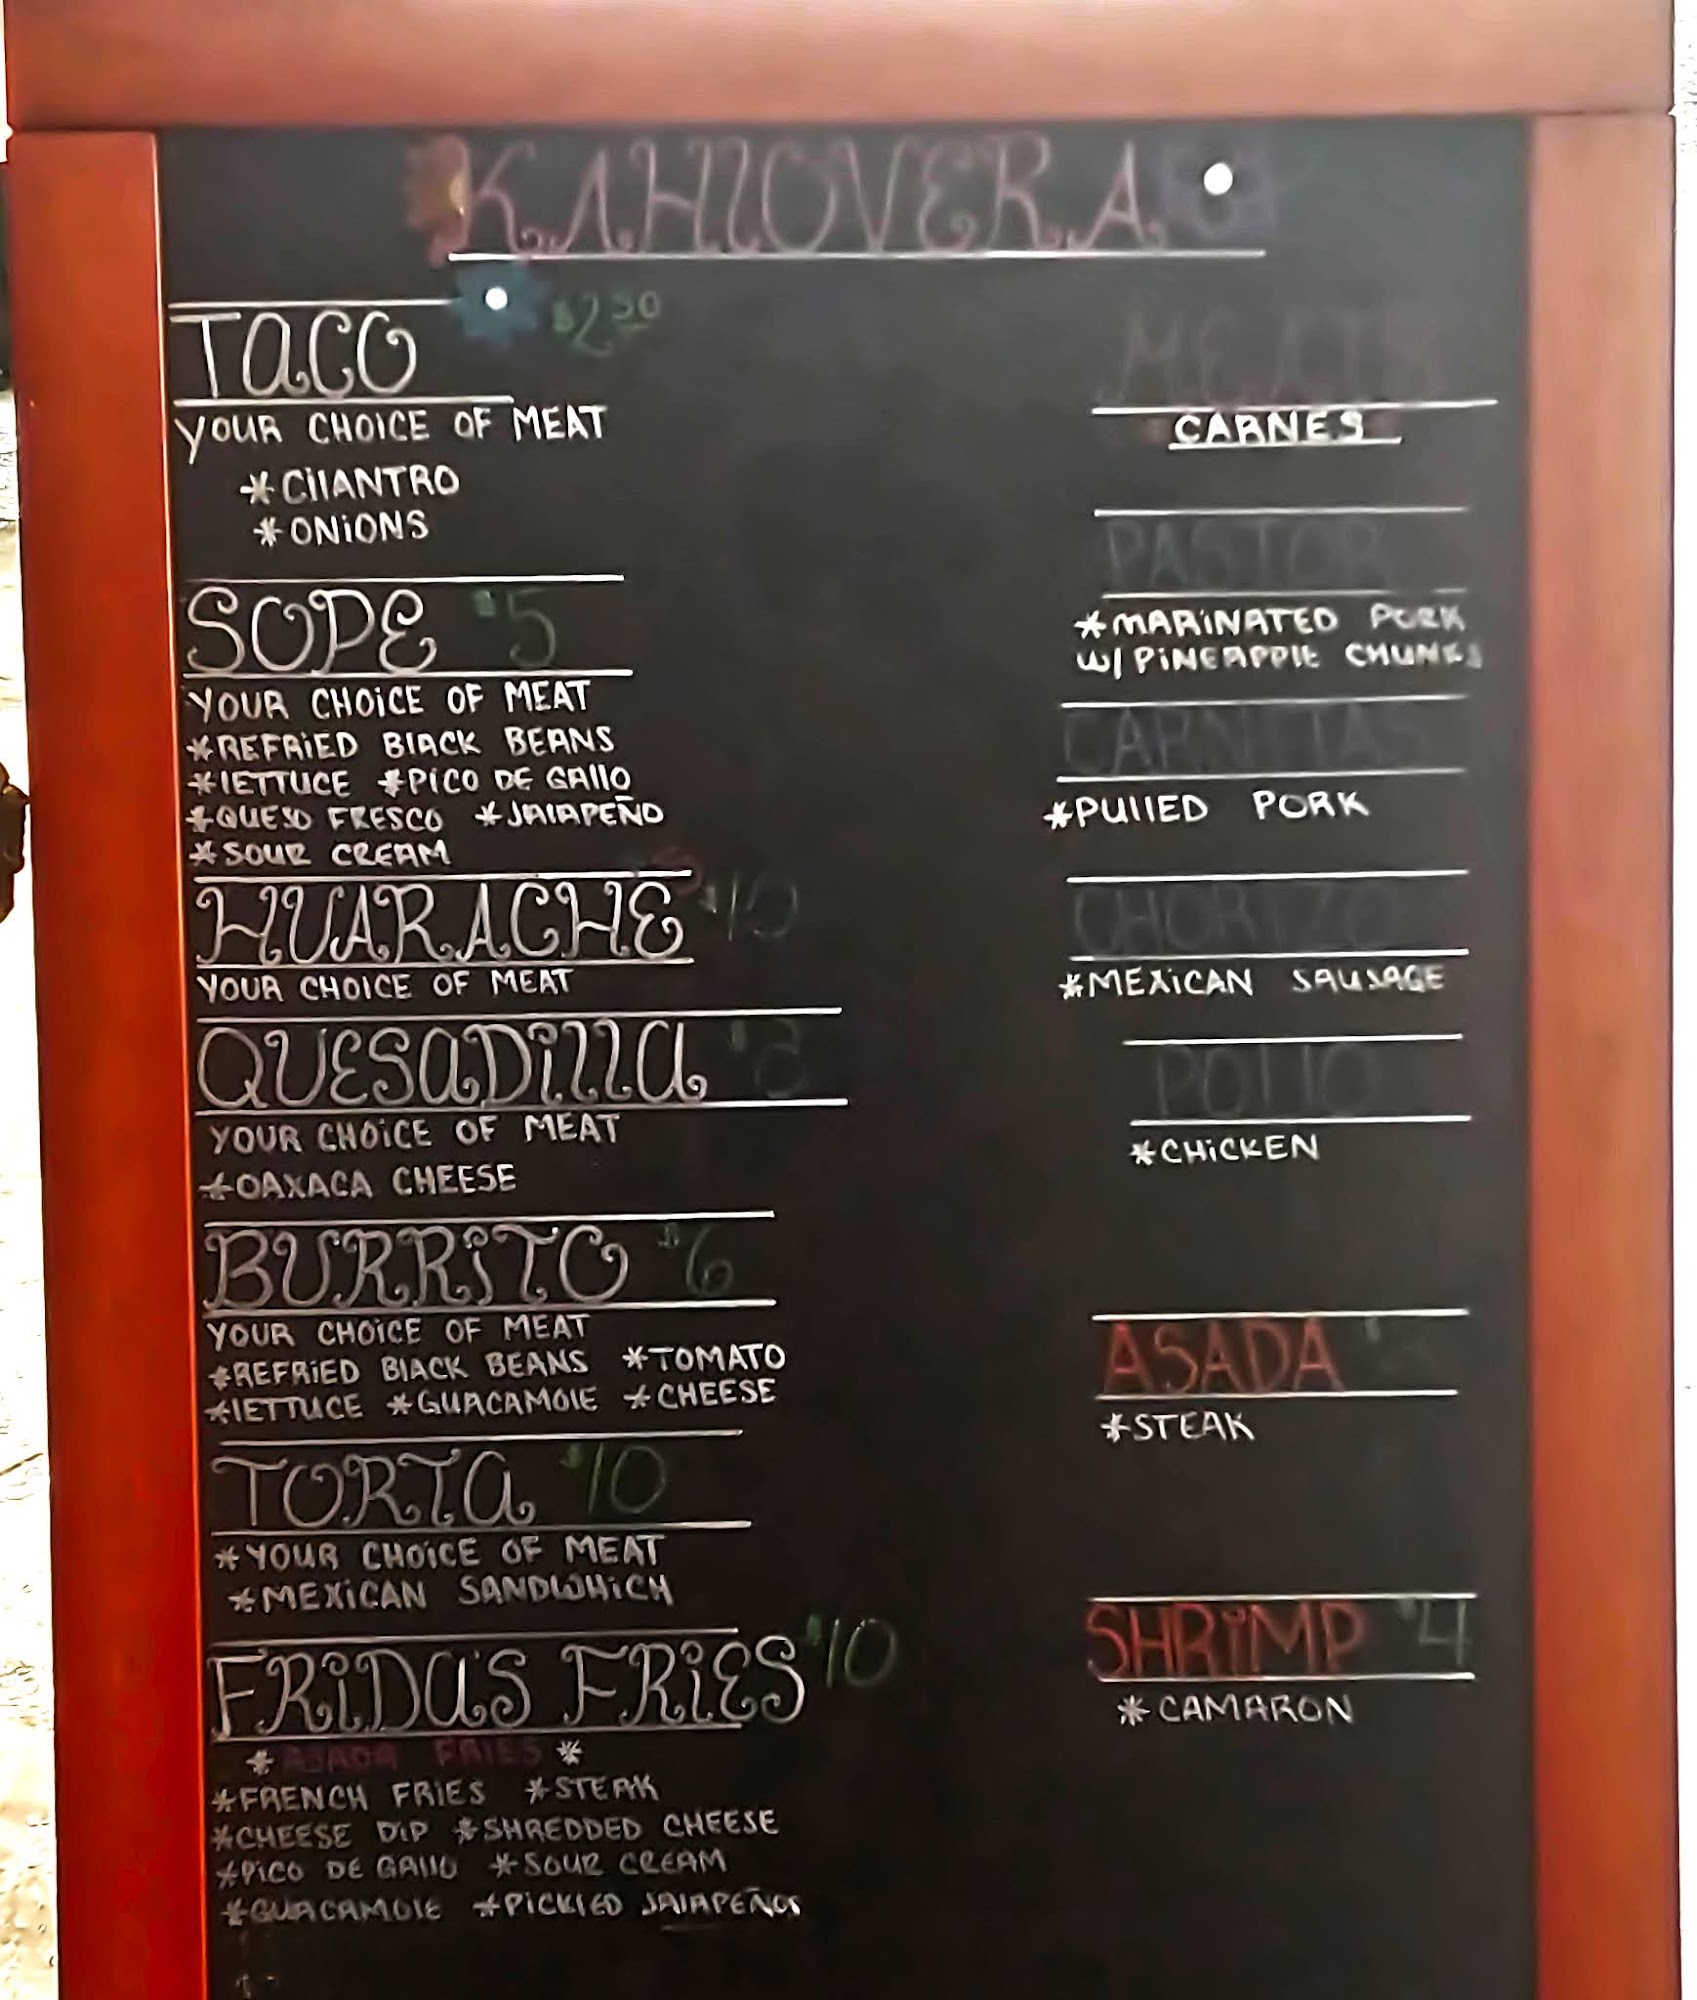 KAHLOVERA
TACO $2.50
YOUR CHOICE OF MEAT
*CILANTRO
*ONIONS
SOPE $5
YOUR CHOICE OF MEAT
*REFRIED BLACK BEANS
*LETTUCE *PICO DE GALLO
*QUESO FRESCO *JALAPEÑO
*SOUR CREAM
HUARACHE $10
YOUR CHOICE OF MEAT
QUESADILLA $8
YOUR CHOICE OF MEAT
*OAXACA CHEESE
BURRITO $6
YOUR CHOICE OF MEAT
*REFRIED BLACK BEANS *TOMATO
*LETTUCE *GUACAMOLE *CHEESE
TORTA $10
*YOUR CHOICE OF MEAT
*MEXICAN SANDWHICH
FRIDA'S FRIES $10
*ASADA FRIES*
*FRENCH FRIES *STEAK
*CHEESE DIP *SHREDDED CHEESE
*PICO DE GALLO *SOUR CREAM
*GUACAMOLE *PICKLED JALAPEÑOS
MEATS
CARNES
PASTOR
*MARINATED PORK
W/ PINEAPPLE CHUNKS
CARNITAS
*PULLED PORK
CHORIZO
*MEXICAN SAUSAGE
POLLO
*CHICKEN
ASADA
*STEAK
SHRIMP $4
*CAMARON